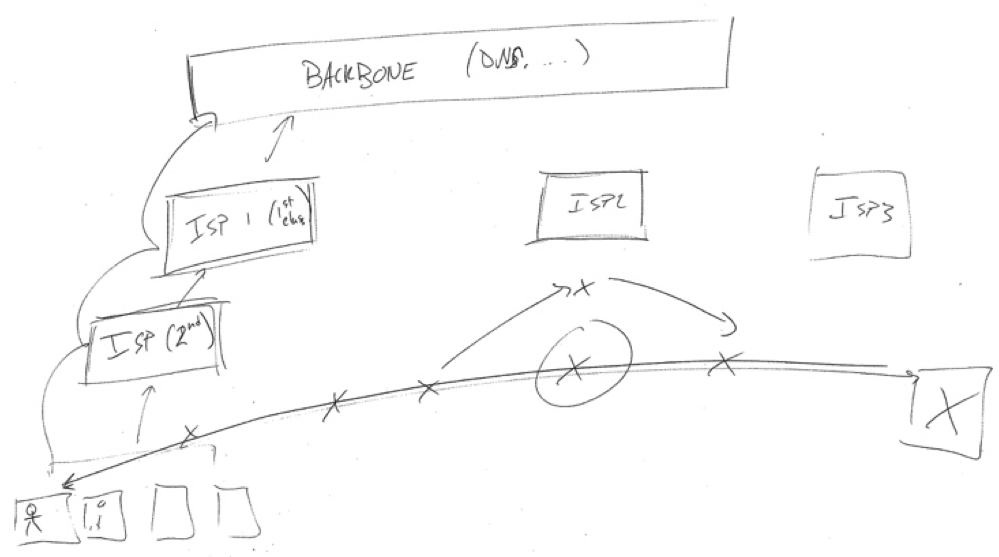 BACKBONE (DNS, ...)
ISP 1 (1st class)
ISP2
ISP3
ISP (2nd)
X
X
X
X
X
X
X